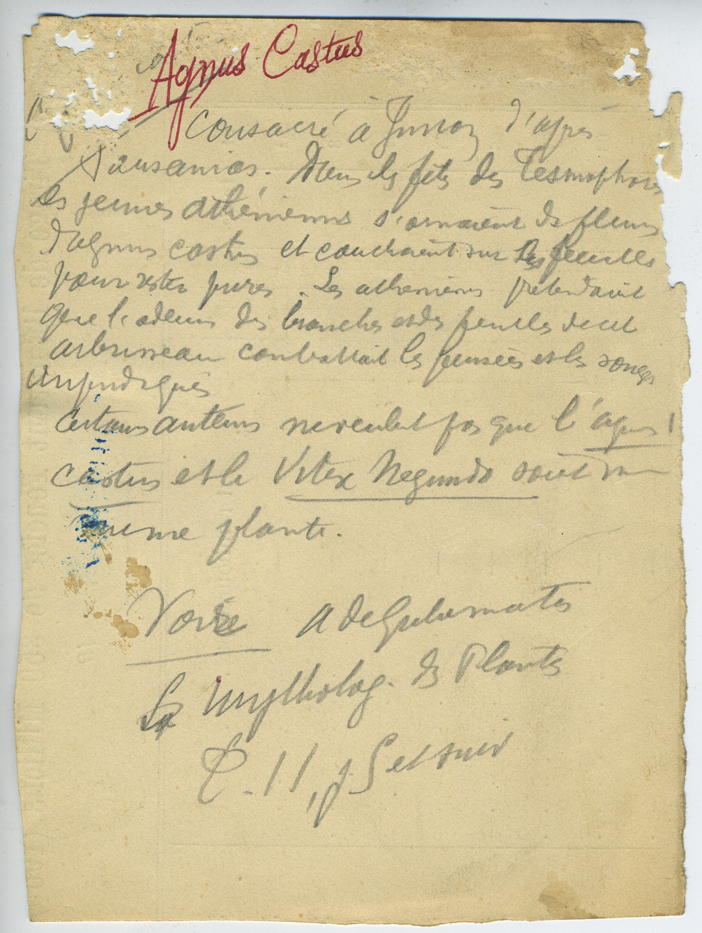 Agnus Castus
Consacré à Junon d'après
Pausanias. Dans les fêtes des Tesmophores
les jeunes athéniennes s'ornaient de fleurs
d'agnus castus et couchaient sur les feuilles
pour rester pures. Les atheniens prétendaient
que l'odeur des branches et des feuilles de cet
arbrisseau combattait les pensées et les songes
impudiques
Certains auteurs ne veulent pas que l'agnus
castus et le Vitex Negundo soient une
même plante.
Voire A de Gubernatis
La Mytholog. des Plantes
T. II, p 5 et suiv